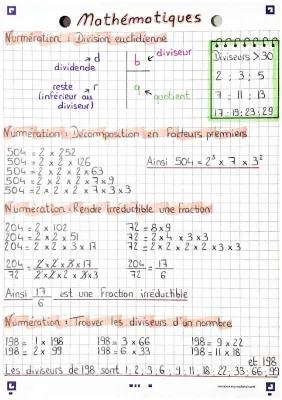 Mathématiques
Numération : Division euclidienne
d
b
diviseur
dividende
reste
(inférieur au
diviseur)
r
q
quotient
Diviseurs > 30
2 ; 3 ; 5
7 ; 11 ; 13
17 ; 19 ; 23 ; 29
Numération : Décomposition en facteurs premiers
504 = 2 x 252
504 = 2 x 2 x 126
504 = 2 x 2 x 2 x 63
504 = 2 x 2 x 2 x 7 x 9
504 = 2 x 2 x 2 x 7 x 3 x 3
Ainsi 504 = 2³ x 7 x 3²
Numération : Rendre irréductible une fraction
204 = 2 x 102
204 = 2 x 2 x 51
204 = 2 x 2 x 3 x 17
72 = 8 x 9
72 = 2 x 4 x 3 x 3
72 = 2 x 2 x 2 x 3 x 3
204 = 2 x 2 x 3 x 17
72 2 x 2 x 2 x 3 x 3
204 = 17
72 6
Ainsi 17 est une fraction irréductible
6
Numération : Trouver les diviseurs d'un nombre
198 = 1 x 198
198 = 3 x 66
198 = 9 x 22
198 = 2 x 99
198 = 6 x 33
198 = 11 x 18
et 198
Les diviseurs de 198 sont 1 ; 2 ; 3 ; 6 ; 9 ; 11 ; 18 ; 22 ; 33 ; 66 ; 99